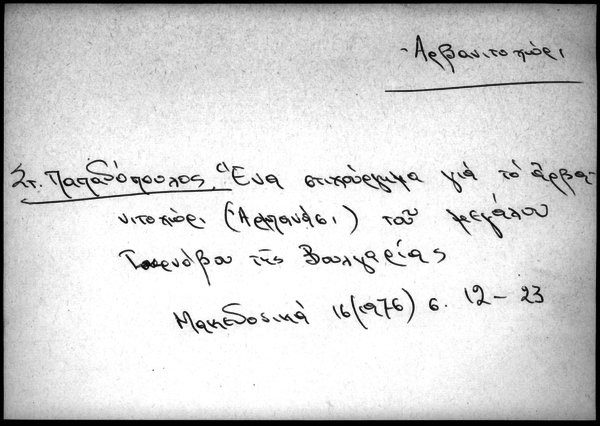 Ἀρβανιτοχώρι
Στ. Παπαδόπουλος, Ἕνα στιχούργημα γιά τό Ἀρβα-
νιτοχώρι (Ἀρπανάσι) τοῦ μεγάλου
Τυρνόβου τῆς Βουλγαρίας
Μακεδονικά 16 (1976) σ. 12 - 23